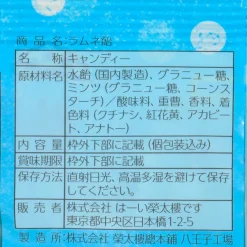 商品名 ラムネ飴
名称 キャンディー
原材料名 水飴(国内製造)、グラニュー糖、
ミンツ(グラニュー糖、コーンス
ターチ)/酸味料、重曹、香料、着
色料(クチナシ、紅花黄、アカビー
ト、アナトー)
内容量 枠外下部に記載(個包装込み)
賞味期限 枠外下部に記載
保存方法 直射日光、高温多湿を避けて保存
してください。
販売者 株式会社 はーい榮太樓です
東京都中央区日本橋1-2-5
製造所 株式会社 榮太樓總本鋪 八王子工場